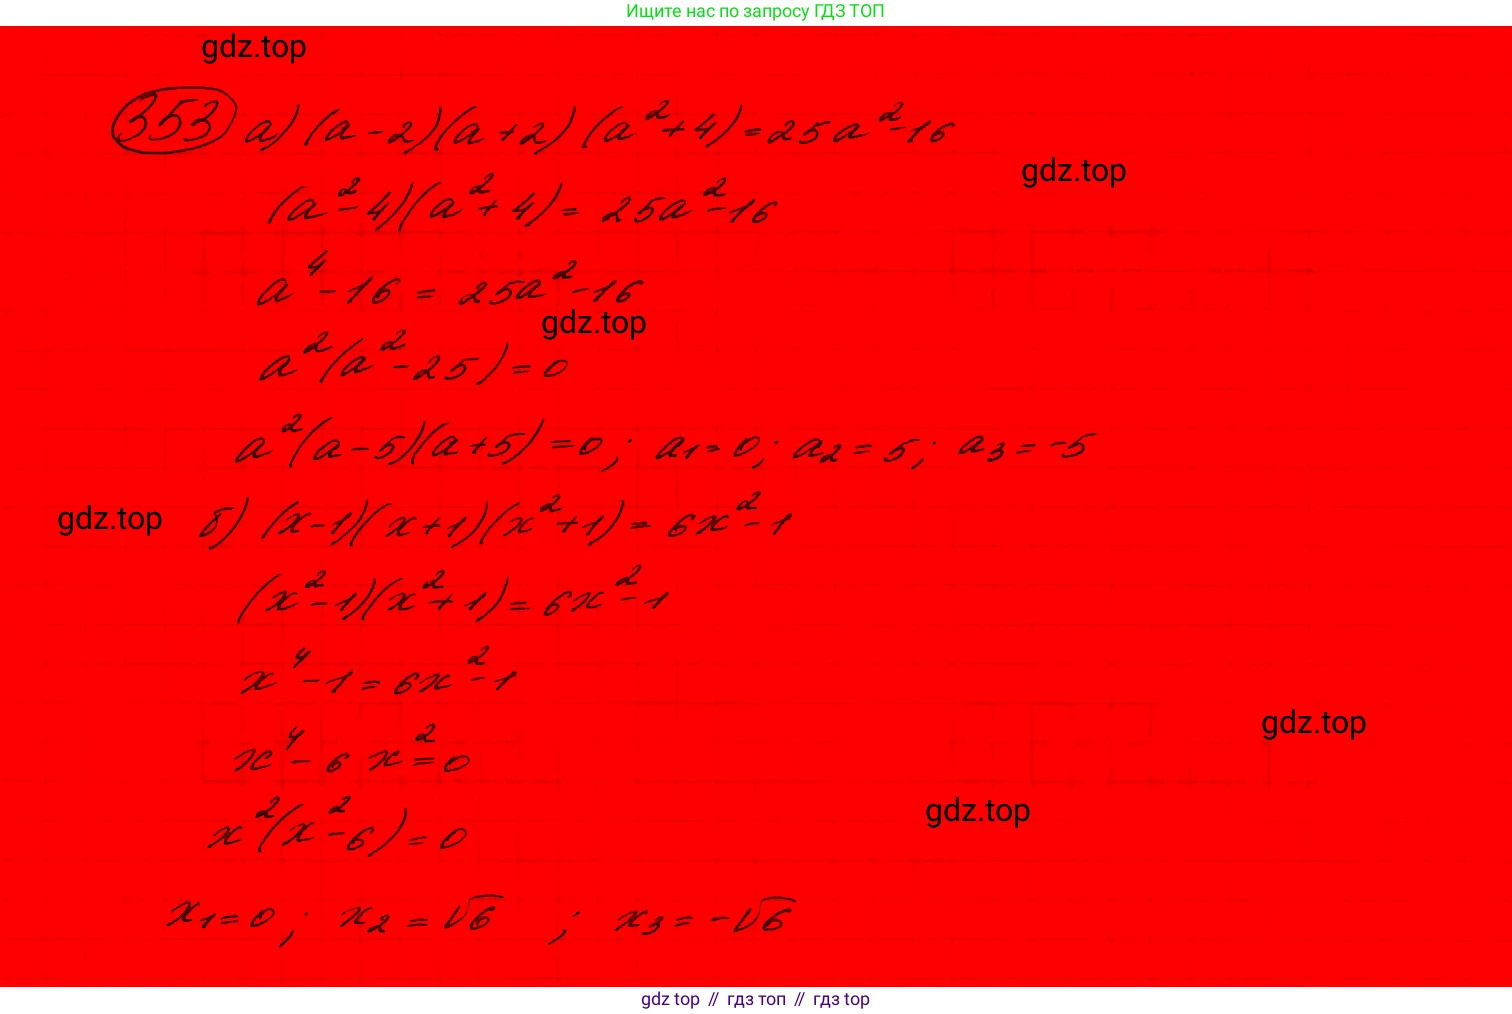 Ищите нас по запросу ГДЗ ТОП
gdz.top
353 а) (a-2)(a+2)(a²+4)=25a²-16
gdz.top
(a²-4)(a²+4)=25a²-16
a⁴-16=25a²-16
gdz.top
a²(a²-25)=0
a²(a-5)(a+5)=0; a₁=0; a₂=5; a₃=-5
gdz.top
б) (x-1)(x+1)(x²+1)=6x²-1
(x²-1)(x²+1)=6x²-1
x⁴-1=6x²-1
gdz.top
x⁴-6x²=0
gdz.top
x²(x²-6)=0
x₁=0; x₂=√6; x₃=-√6
gdz top // гдз топ // гдз top